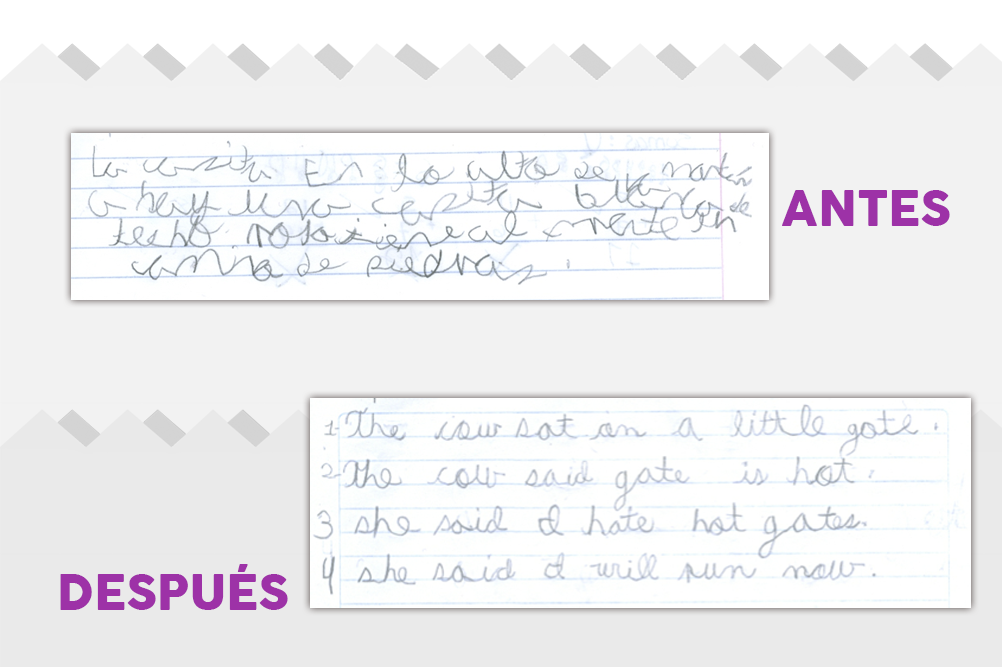 La casita En lo alto de montañ
a hay una casita blanca de
tesho
de piedras.
ANTES
1 The cow sat on a little gate.
2 The cow said gate is hot.
3 she said I hate hot gates.
4 she said I will run now.
DESPUÉS